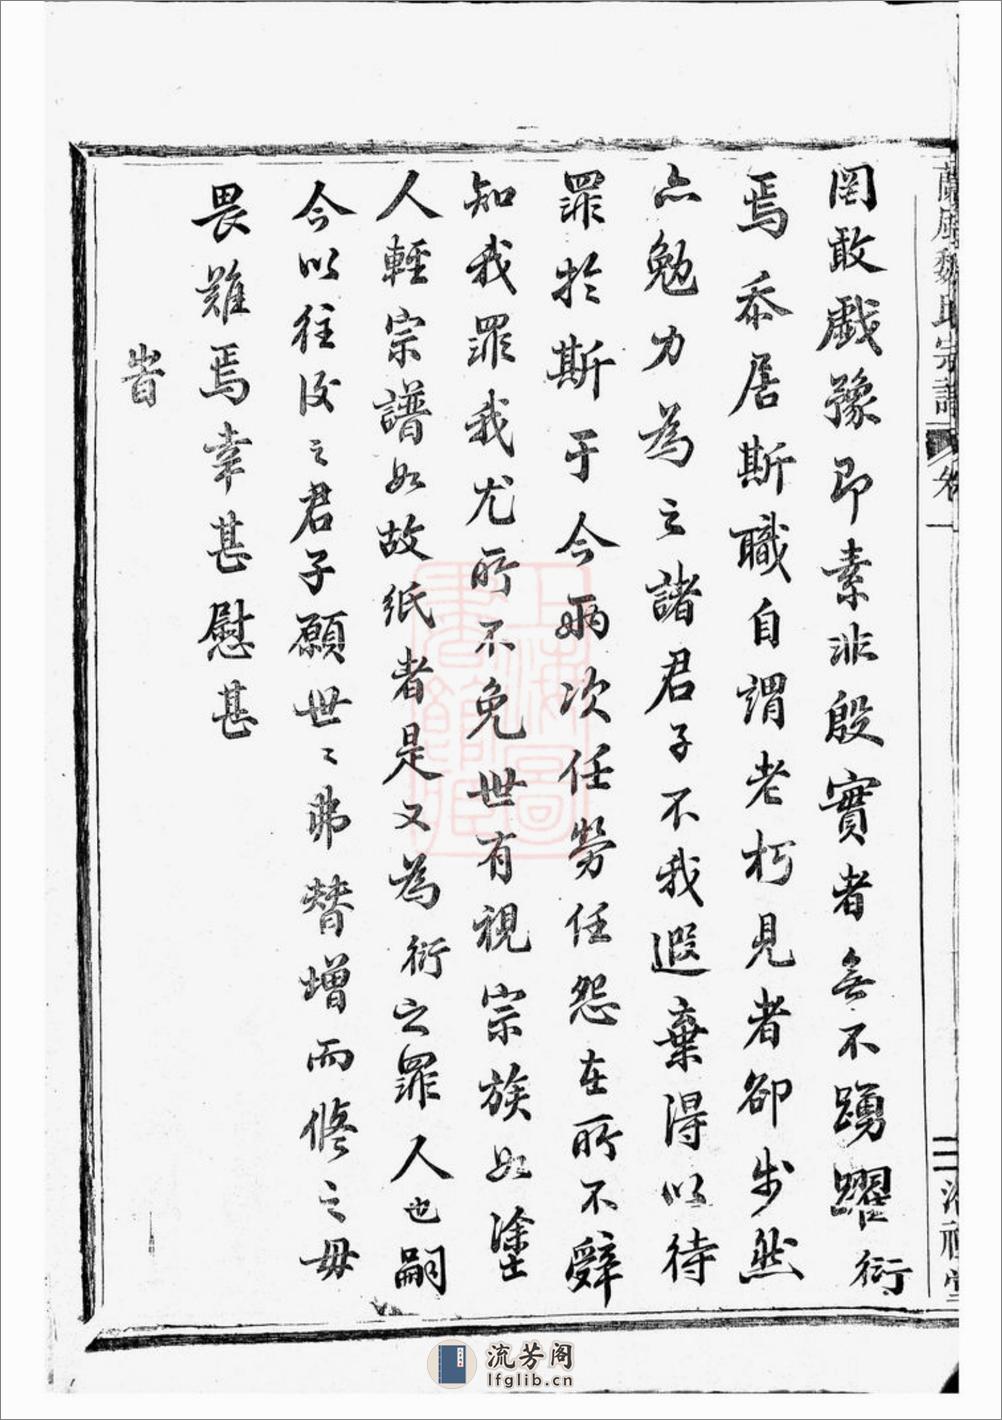 蘭風魏氏宗譜 卷一
罔敢戯豫即素非殷實者無不踴躍衍
焉忝居斯職自謂老朽見者卻步然
亦勉力為之諸君子不我遐棄得以待
罪於斯于今兩次任勞任怨在所不辭
知我罪我尤所不免世有視宗族如塗
人輕宗譜如故紙者是又為衍之罪人也嗣
今以往後之君子願世〻弗替增而修之毋
畏難焉幸甚慰甚
旹
上海圖書館藏
流芳阁
lfglib.cn